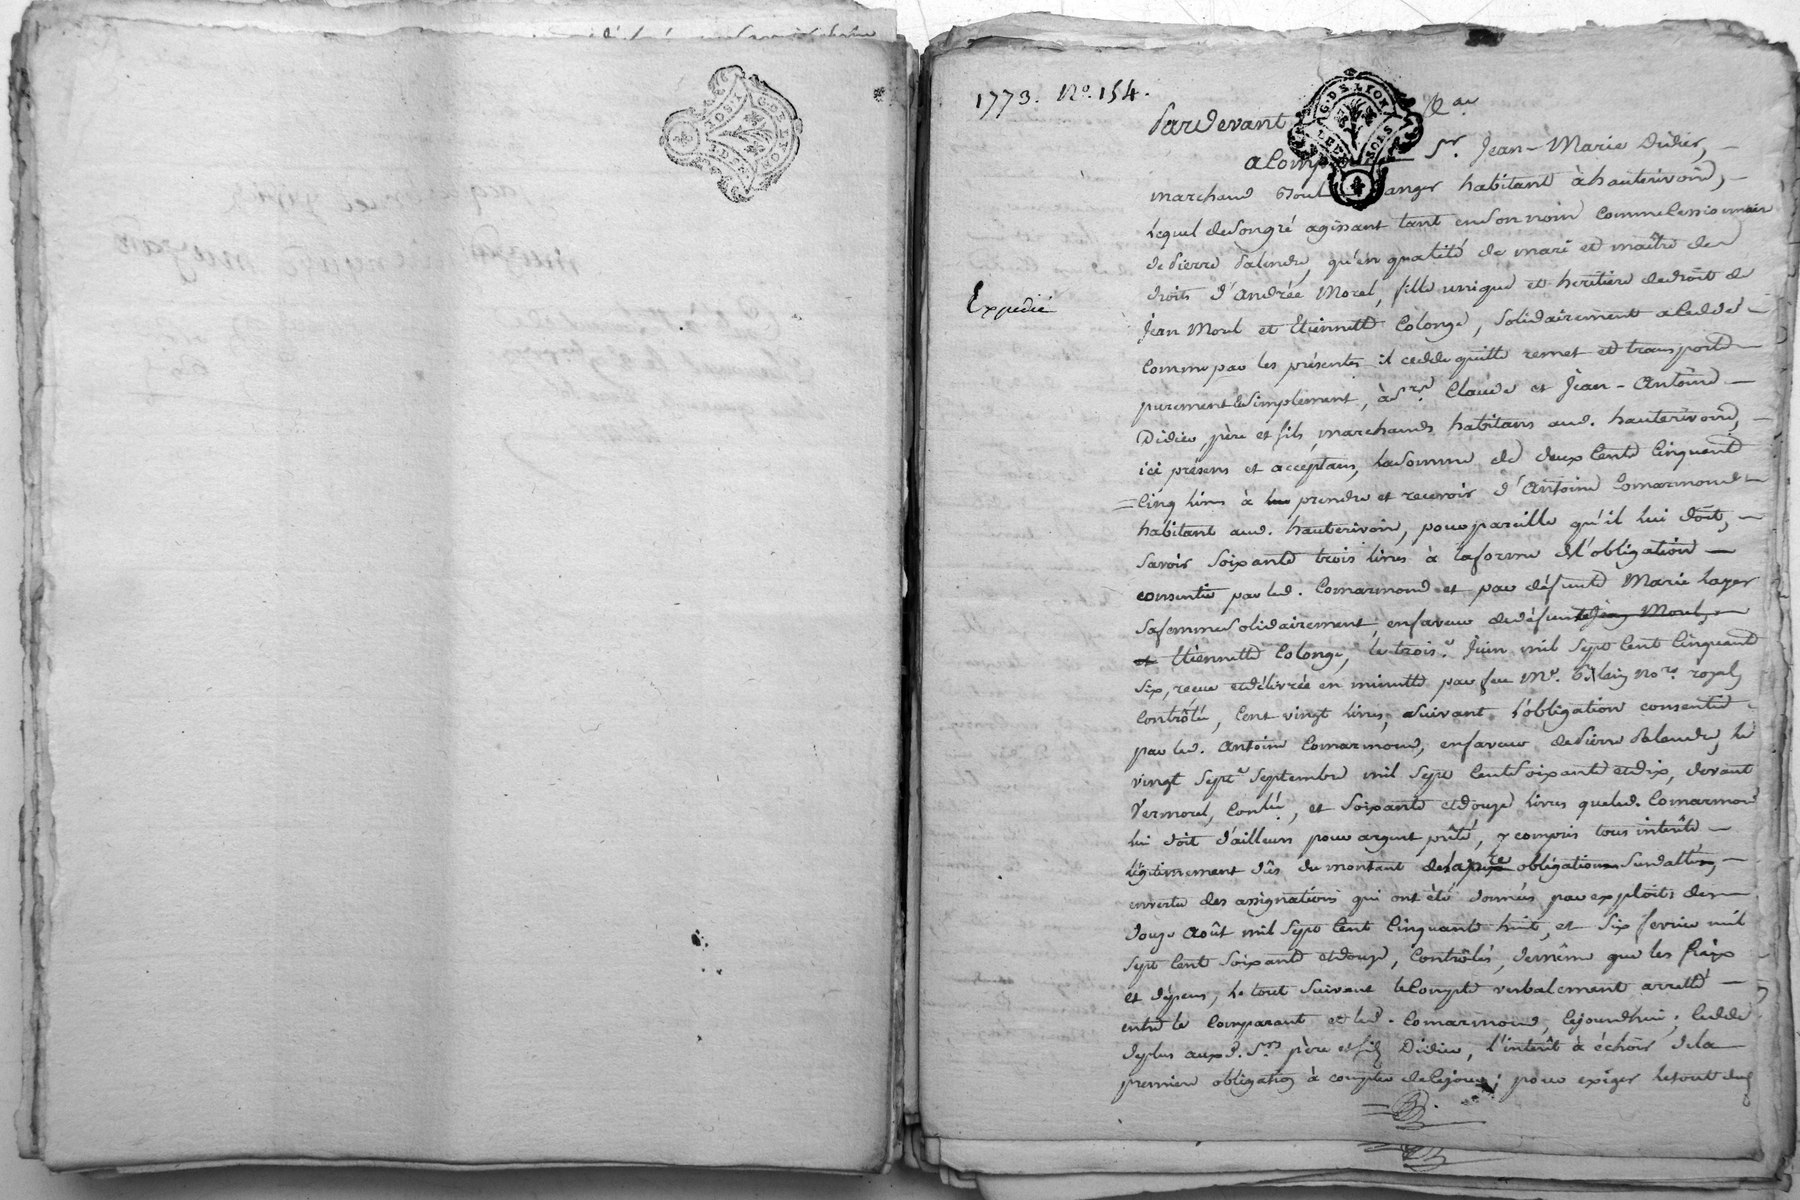 1773. No. 154.
Pardevant &a
a Comp Sr. Jean-Marie Didier,
marchand Boul anger habitant à hauterivoire,
lequel de son gré agissant tant en son nom comme Cessionnaire
de Pierre Palendre, qu'en qualité de mari et maître des
droits d'Andrée Morel, fille unique et heritiere de droit de
Jean Morel et Etiennette Colonge, Solidairement a Cedé
Comme par les présentes il cedde quitte remet et transporte
purement et simplement, à Srs. Claude et Jean-Antoine
Didier, père et fils, marchands habitans aud. hauterivoire,
ici présens et acceptans, la somme de deux Cent Cinquante
Cinq livres à prendre et recevoir d'Antoine Comarmond
habitant aud. hauterivoire, pour pareille qu'il lui doit,
Savoir Soixante trois livres à la forme de l'obligation
consentie par led. Comarmond et par défunte Marie Lager
sa femme solidairement, en faveur de défunte Jean Morel,
et Etiennette Colonge, le trois.e Juin mil Sept Cent Cinquante
Six, reçue et délivrée en minutte par feu Me. Nore. royal
Contrôlée, Cent vingt livres, Suivant l'obligation consentie
par led. Antoine Comarmond, en faveur de Pierre Palendre, le
vingt Sept.e Septembre mil Sept Cent Soixante et dix, devant
Vermorel, Conlée, et Soixante et douze livres que led. Comarmond
lui doit d'ailleurs pour argent prêté, y compris tous intérêts
légitimement dûs du montant de la pre obligation Surdattée,
en vertu des assignations qui ont été données par exploits des
douze Août mil Sept Cent Cinquante huit, et Six fevrier mil
Sept Cent Soixante et douze, Contrôlés, de même que les fraix
et dépens, le tout Suivant le Compte verbalement arretté
entre le Comparant et led. Comarmond, Cejourdhui; Cedde
de plus aux d. Srs père et fils Didier, l'intérêt à échoir de la
premiere obligation à compter de Cejour; pour exiger le tout du
Expedié
G.D.S. LYON